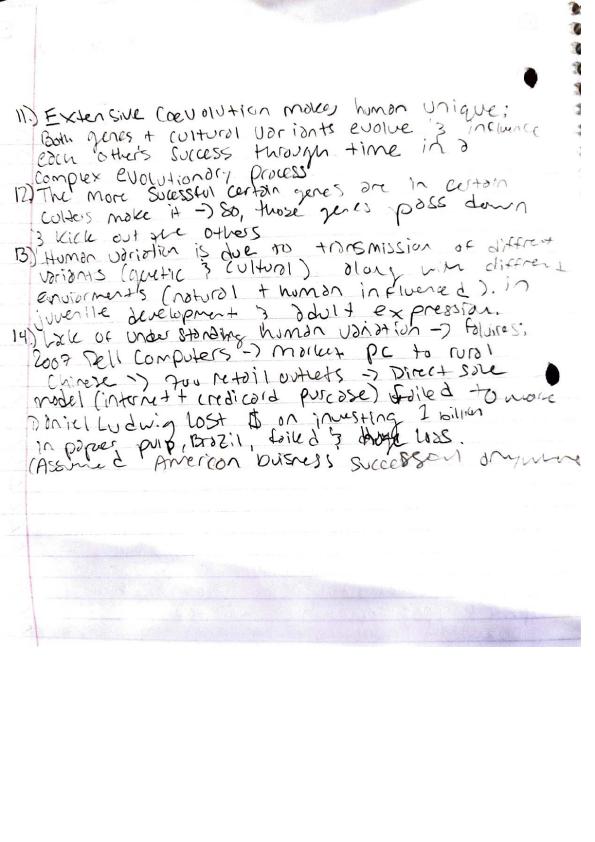 11.) Extensive Coevolution makes human unique;
Both genes + cultural variants evolve & influence
each other's success through time in a
complex evolutionary process
12) The more sucessful certain genes are in certain
make it -> So, those genes pass down
& kick out the others
13.) Human variation is due to transmission of diffrent
variants (genetic & cultural) along with different
enviorments (natural + human influenced). in
juvenile development & adult expression.
14.) Lack of understanding human variation -> failures:
2007 Dell Computers -> market pc to rural
Chinese -> 700 retail outlets -> Direct sale
model (internet + credicard purcase) failed to
Daniel Ludwig lost $ on investing 1 billion
in paper pulp, Brazil, failed & huge loss.
(Assumed American buisness successful anywhere